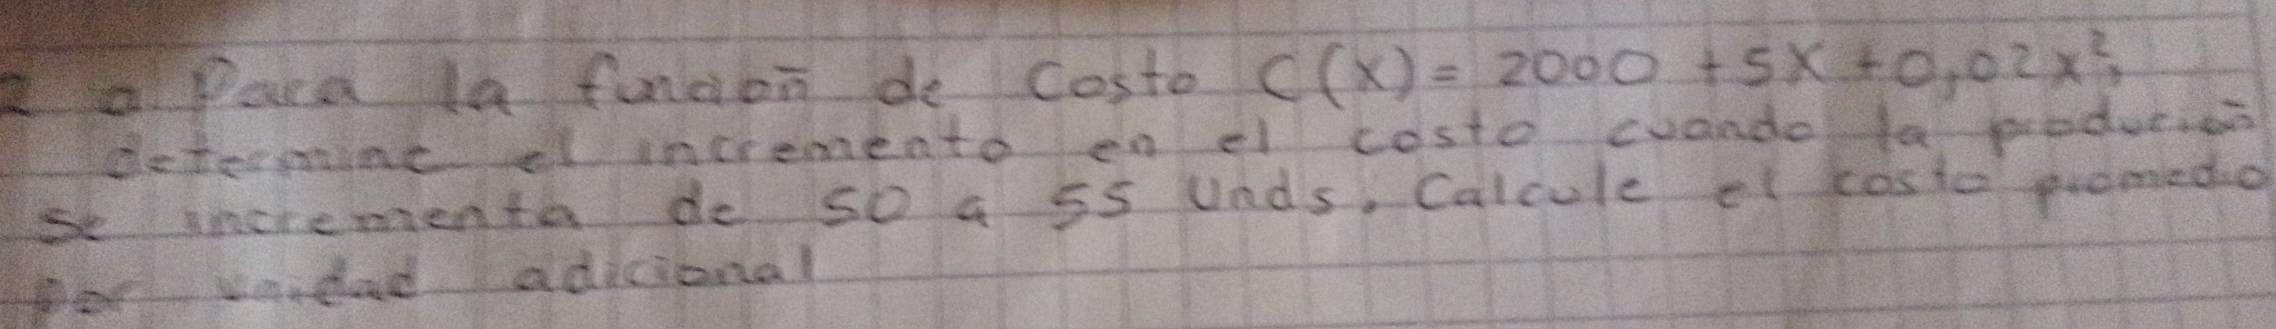 2 a Para la función de Costo C(X) = 2000 + 5X + 0,02x²,
determine el incremento en el costo cuando la producción
se incrementa de 50 a 55 Unds. Calcule el costo promedio
por unidad adicional